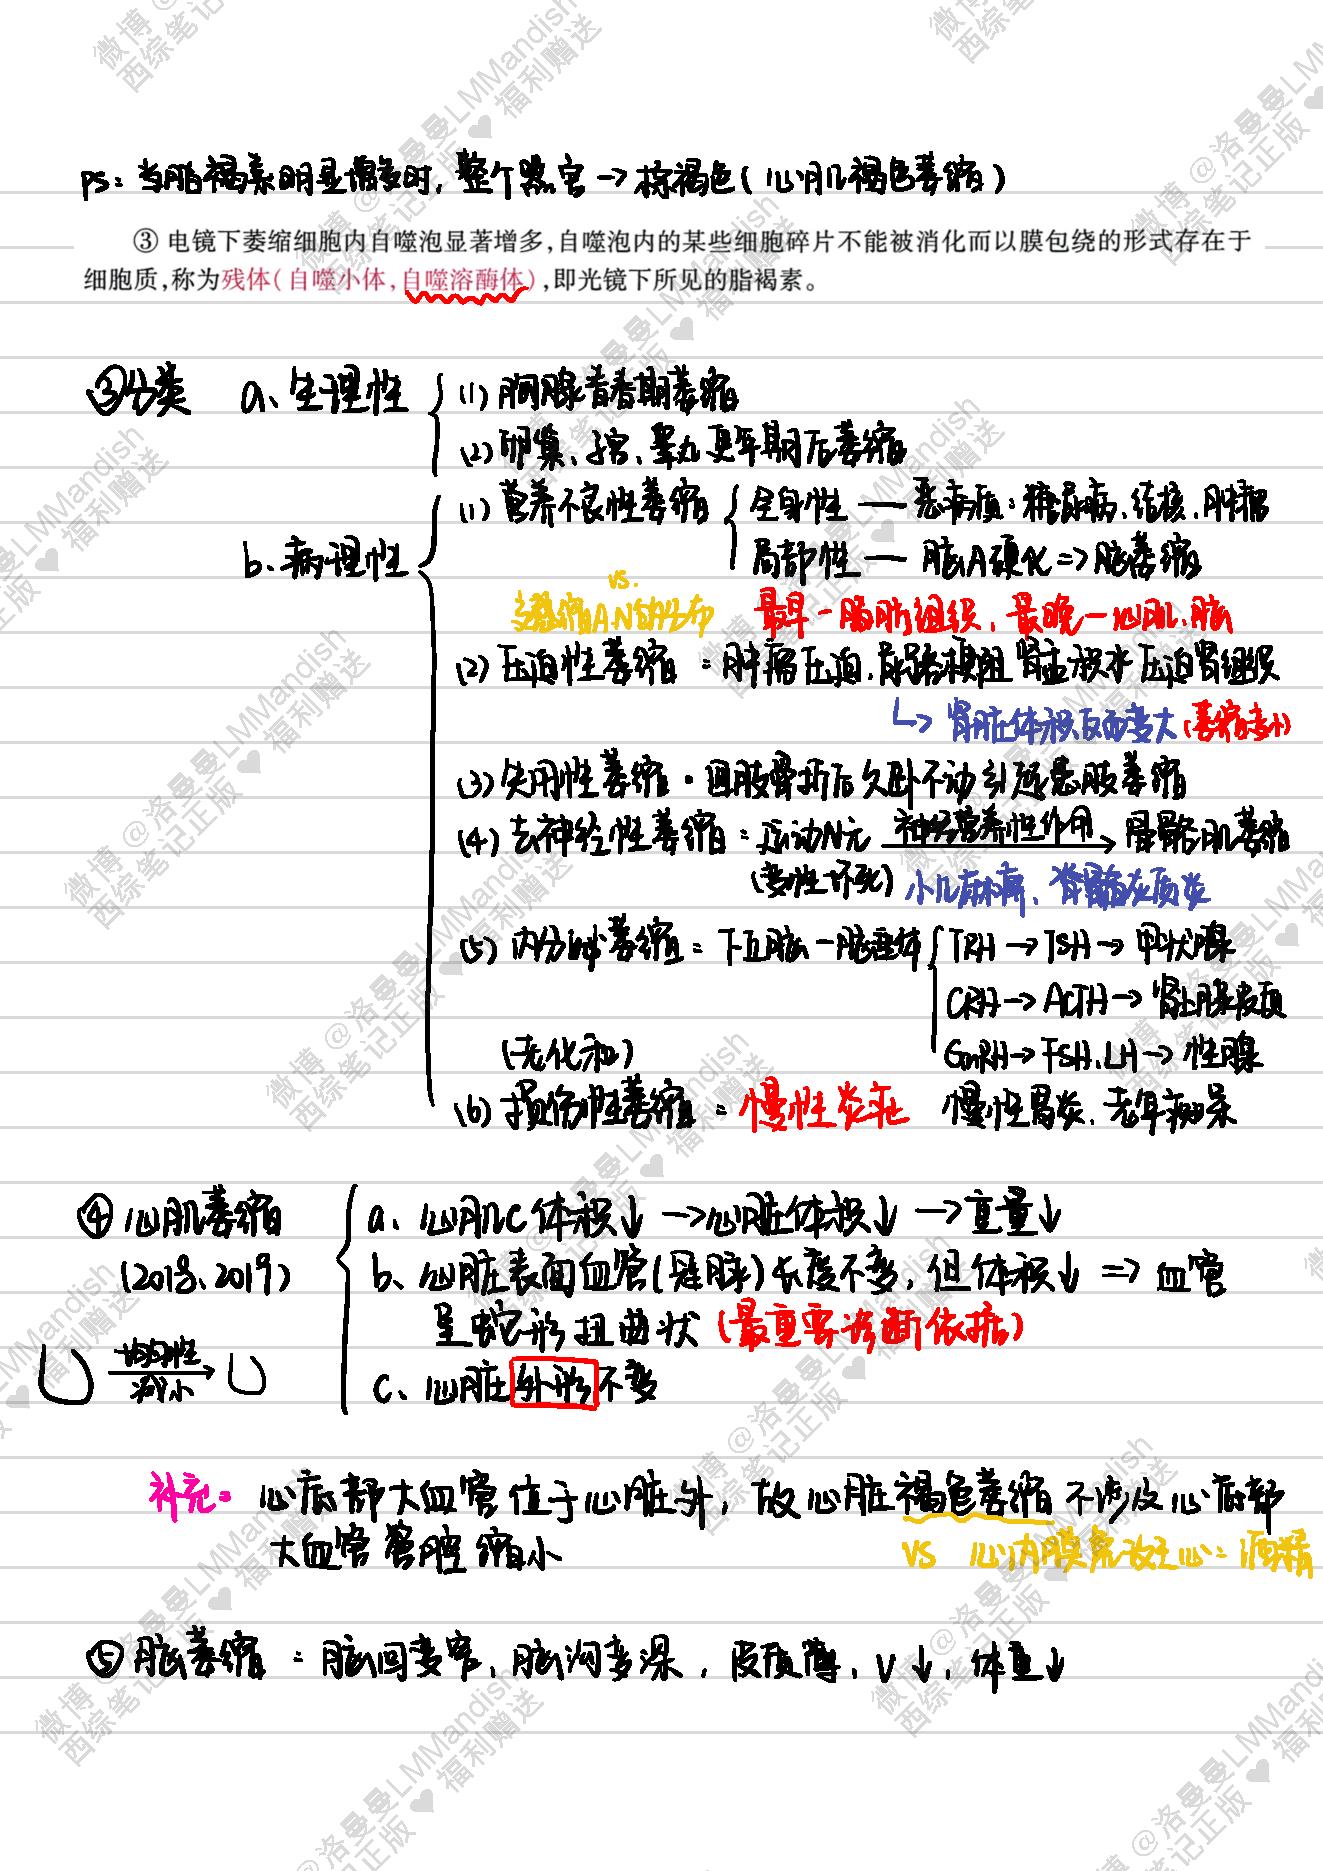 ps：当脂褐素明显增多时，整个器官→棕褐色（心肌褐色萎缩）
③ 电镜下萎缩细胞内自噬泡显著增多,自噬泡内的某些细胞碎片不能被消化而以膜包绕的形式存在于
细胞质,称为残体(自噬小体,自噬溶酶体),即光镜下所见的脂褐素。
③分类 a、生理性 (1) 胸腺青春期萎缩
(2) 卵巢、子宫、睾丸更年期后萎缩
b、病理性 (1) 营养不良性萎缩 全身性 — 恶病质：糖尿病、结核、肿瘤
局部性 — 脑A硬化 => 脑萎缩
vs.
最早—脂肪组织、最晚—心肌、脑
(2) 压迫性萎缩：肿瘤压迫、尿路梗阻肾盂积水压迫肾组织
↳ 肾脏体积反而变大（萎缩变小）
(3) 失用性萎缩：四肢骨折后久卧不动引起患肢萎缩
(4) 去神经性萎缩：运动N元 神经营养性作用→ 骨骼肌萎缩
(变性坏死) 小儿麻痹、脊髓灰质炎
(5) 内分泌萎缩：下丘脑—脑垂体 TRH→TSH→甲状腺
CRH→ACTH→肾上腺皮质
GnRH→FSH、LH→性腺
(老化和)
(6) 损伤性萎缩：慢性炎症 慢性胃炎、老年痴呆
④ 心肌萎缩 a、心肌C体积↓→心脏体积↓→重量↓
(2018、2019) b、心脏表面血管(冠脉)长度不变，但体积↓ => 血管
呈蛇形扭曲状（最重要诊断依据）
均匀性
减小
c、心脏外形不变
补充：心底部大血管位于心脏外，故心脏褐色萎缩不涉及心底部
大血管管腔缩小
VS 心内膜 心：酒精
⑤ 脑萎缩：脑回变窄、脑沟变深，皮质薄、V↓，体重↓
微博 @洛曼曼LMMandish
西综笔记正版 ♥ 福利赠送